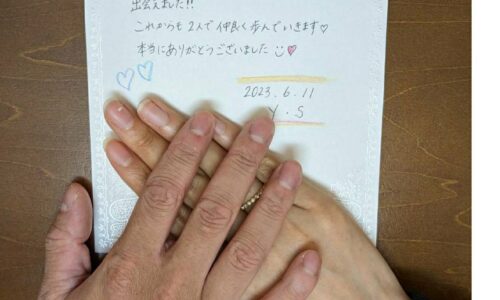 出会えました!!
これからも2人で仲良く歩んでいきます♡
本当にありがとうございました☺♡
2023.6.11
Y.S